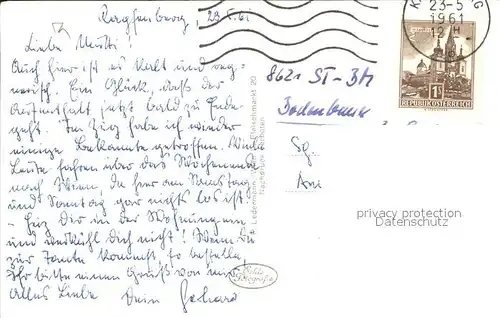 23.5.61
Liebe Mutti!
Auch hier ist es kalt und reg-
nerisch. Ein Glück, daß der
Aufenthalt jetzt bald zu Ende
geht. Im Zug habe ich wieder
einige Bekannte getroffen. Viele
Leute fahren über das Wochenende
nach Wien, da hier am Samstag
und Sonntag gar nichts los ist.
– Dir in der Wohnung ein
und verkühl Dich nicht! Wenn Du
zur Tante kommst, so bestelle
ihr bitte einen Gruß von mir
Alles Liebe
Dein Gerhard
23-5
1961
12 H
1S
REPUBLIK ÖSTERREICH
8621 ST-
Fleischmarkt 20
Nachdruck verboten
Echte
Fotografie
privacy protection
Datenschutz